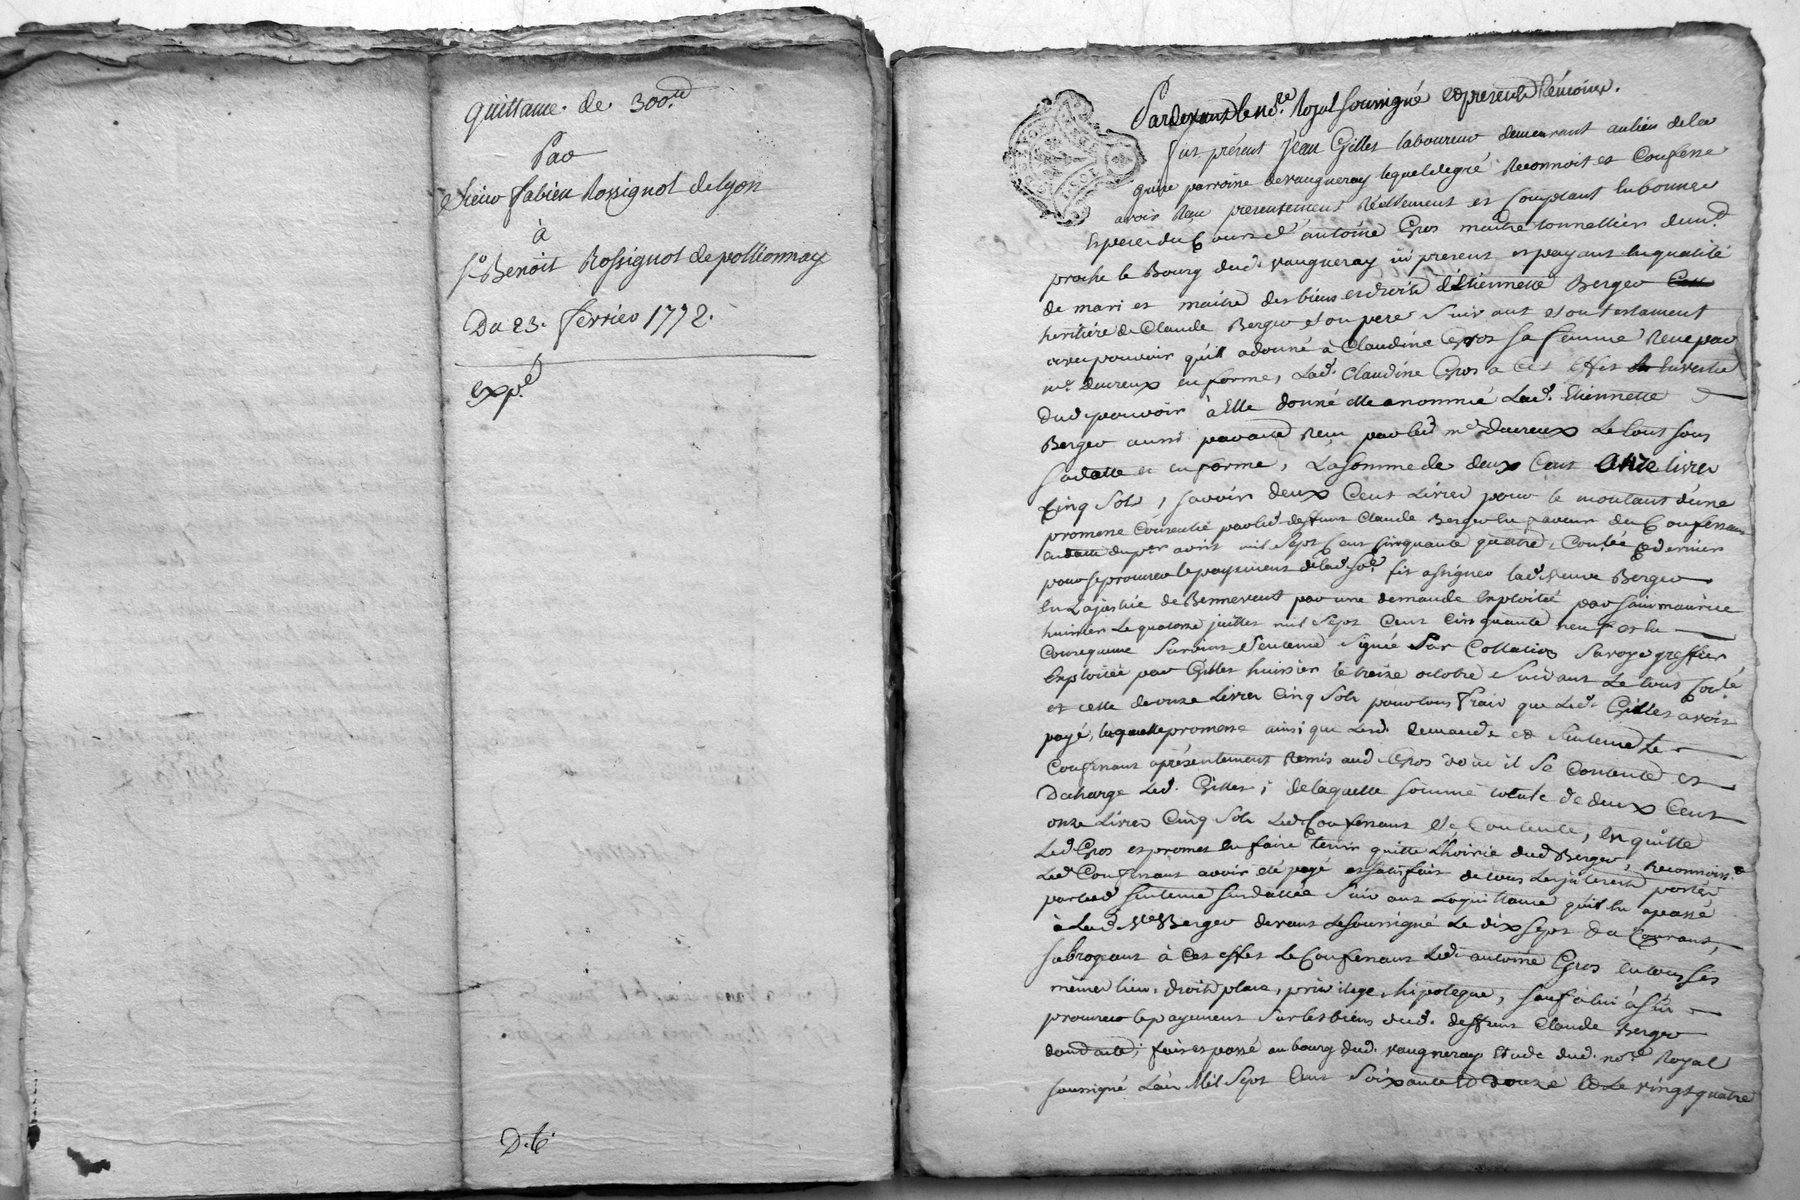 quittance de 300.ll
Par
Sieur fabien Rossignol de lyon
à
S.r Benoit Rossignol de pollionnay
Du 23. fevrier 1772.
exp.é
D. té
Pardevant le no.re Royal soussigné et presents témoins.
fut présent Jean Gillet laboureur demeurant au lieu de la
paroisse de vaugneray lequel de gré Reconnoit et Confesse
avoir Reçu presentement Réellement et Comptant en bonnes
Especes du Cours d'antoine Gros maitre tonnellier dem.t
proche le Bourg dud. vaugneray ici present et payant en qualité
de mari et maitre des biens et droits d'Etiennette Berger
heritiére de Claude Berger son pere Suivant son testament
avec pouvoir qu'il a donné à Claudine Gros sa femme Reçu par
m.e Ducreux en forme, Lad. Claudine Gros a Cet effet investie
Dud. pouvoir à Elle donné elle a nommé Lad. Etiennette
Berger aussi par acte Reçu par led. m.e Ducreux Le tout sous
sa datte et en forme, La somme de deux Cent onze livres
Cinq Sols, savoir deux Cent Livres pour le montant d'une
promesse Consentie par led. deffunt Claude Berger en faveur du Confessant
en datte du p.er avril mil Sept Cent Cinquante quatre, Conlée Ce dernier
pour se procurer le payement de lad. So.e fit assigner lad. veuve Berger
En La justice de Bennevent par une demande Exploitée par saint maurice
huissier Le quatorze juillet mil Sept Cent Cinquante neuf et en
Consequence Survint Sentence Signée Par Collation Savoye greffier
Exploitée par Gillet huissier le treize octobre Suivant Le tout Conlé,
et celle de onze Livres Cinq Sols pour tous frais que Led. Gillet avoit
payé, laquelle promesse ainsi que Lesd. demande et Sentence Le
Confessant a présentement Remis aud. Gros dont il Se Contente et
Decharge Led. Gillet; de laquelle somme totale de deux Cent
onze Livres Cinq Sols Led. Confessant Se Contente, en quitte
Led. Gros et promet En faire tenir quitte L'hoirie dud. Berger, Reconnoiss.t
Led. Confessant avoir été payé et satisfait de tous Les jnterets portés
par lad. Sentence Susdattée Suivant La quittance qu'il en a passé
à Lad. V.e Berger devant Le soussigné Le dix sept du Courant,
subrogeant à Cet effet Le Confessant Led. antoine Gros en tous ses
mêmes lieu, droits, place, privilege, hipoteque, sauf à lui à S'en
procurer le payement Sur les biens dud. deffunt Claude Berger
dont acte; fait et passé au bourg dud. vaugneray Etude dud. no.re Royal
soussigné L'an Mil Sept Cent Soixante et douze et Le vingt quatre